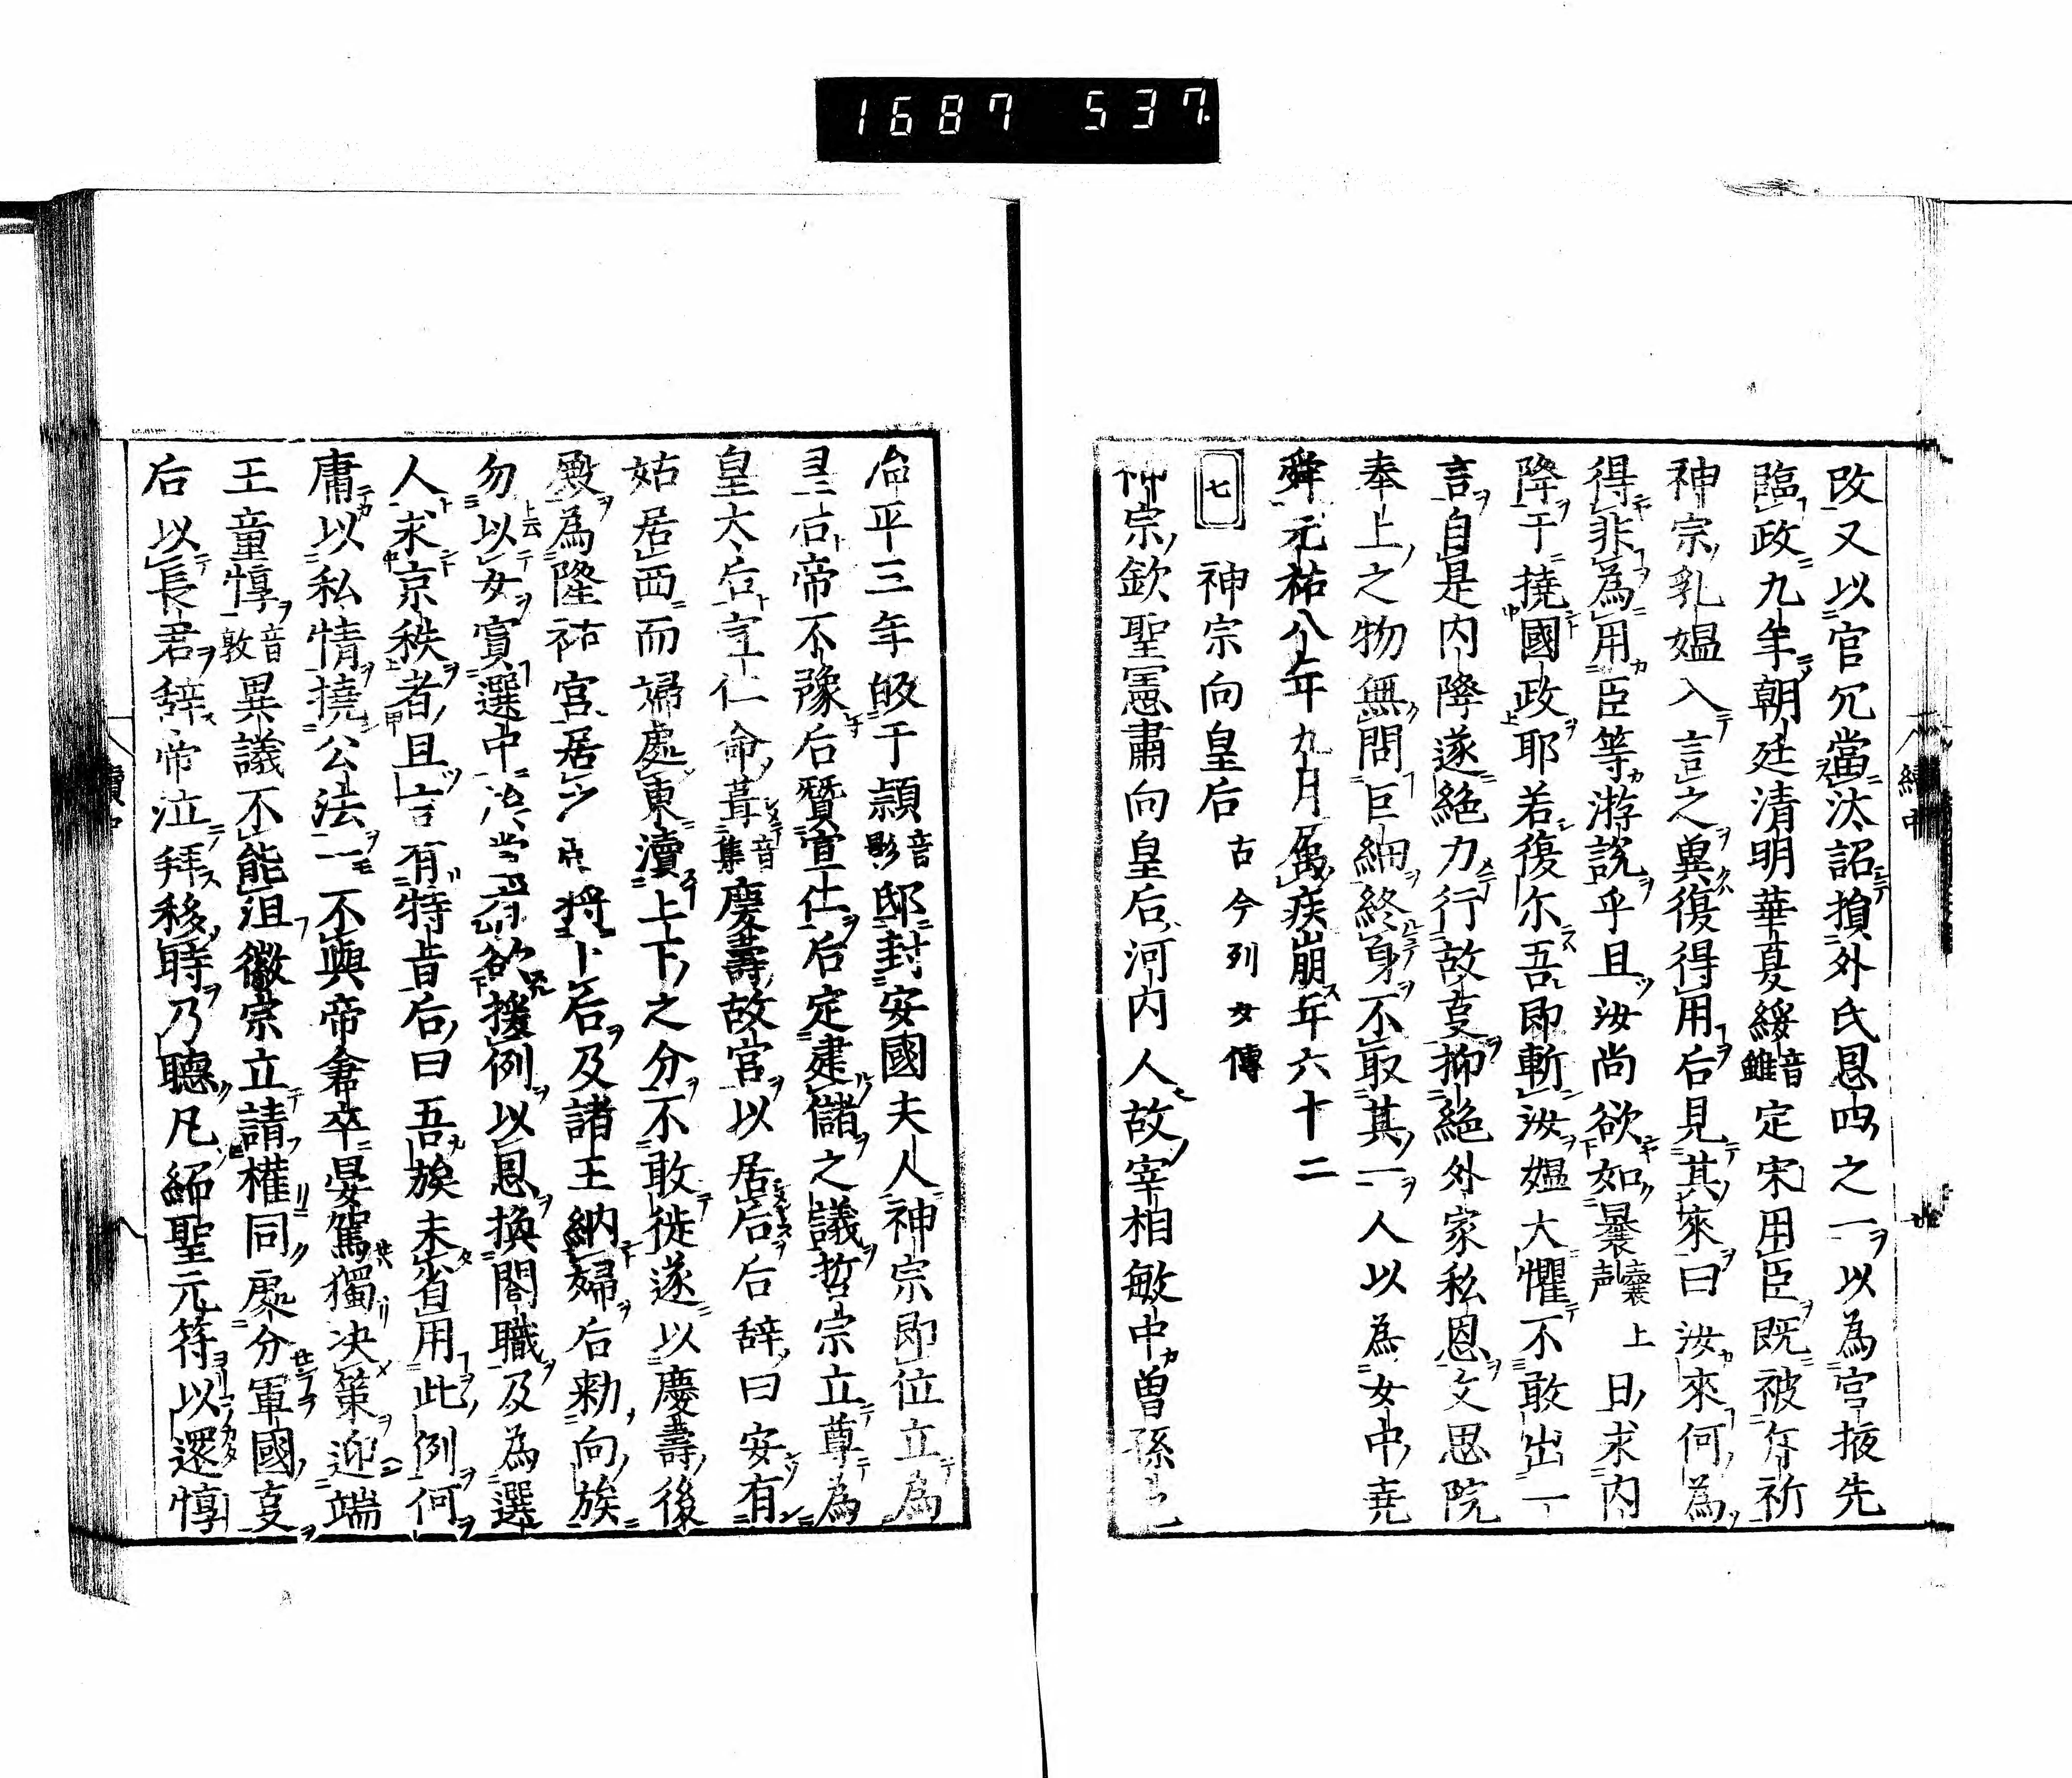 1687 537.
改又以官冗當汰詔損外氏恩四之一以為宮掖先
臨政九年朝廷清明華夏綏音雖定宋用臣既被斥祈
神宗乳媼入言之冀復得用后見其來曰汝來何為
得非為用臣等游說乎且汝尚欲如曩囊上声日求内
降于撓國政耶若復尓吾即斬汝媼大懼不敢出一
言自是内降遂絶力行故事抑絶外家私恩文思院
奉上之物無問巨細終身不取其一人以為女中堯
舜元祐八年九月属疾崩年六十二
七 神宗向皇后 古今列女傳
神宗欽聖憲肅向皇后河内人故宰相敏中曽孫也
治平三年皈于頴音影邸封安國夫人神宗即位立為
皇后帝不豫后賛宣仁后定建儲之議哲宗立尊為
皇太后宣仁命葺音集慶壽故宮以居后后辞曰安有
姑居西而婦處東瀆上下之分不敢徙遂以慶壽後
殿為隆祐宮居之帝将卜后及諸王納婦后勅向族
勿以女寘選中欲援例以恩換閤職及為選
人求京秩者且言有特旨后曰吾族未省用此例何
庸以私情撓公法一不與帝倉卒晏駕獨决策迎端
王童惇音敦異議不能沮徽宗立請權同處分軍國事
后以長君辞帝泣拜移時乃聽凡紹聖元符以還惇